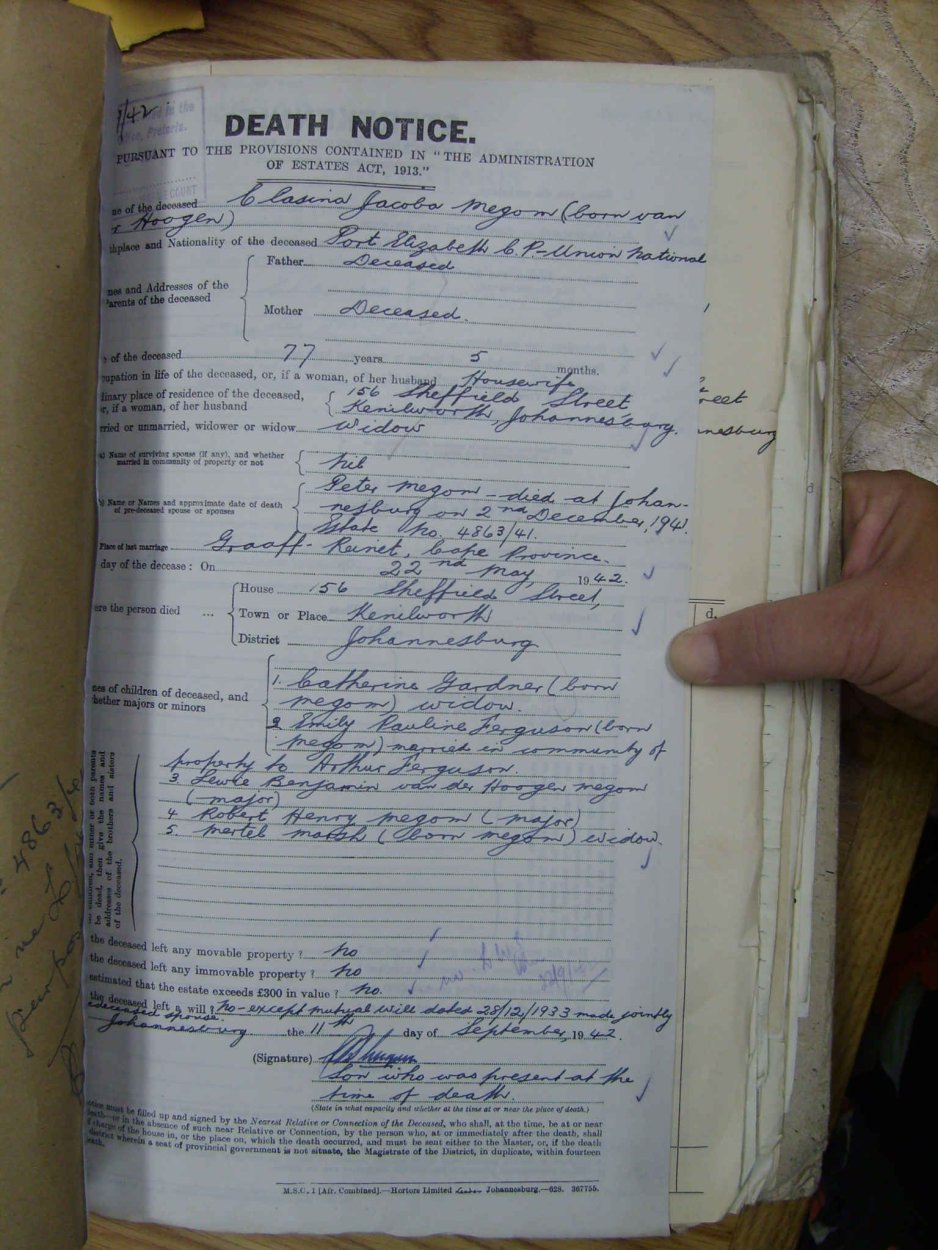 /42
in the
Pretoria.
COURT
DEATH NOTICE.
PURSUANT TO THE PROVISIONS CONTAINED IN "THE ADMINISTRATION
OF ESTATES ACT, 1913."
ne of the deceased Clasina Jacoba Megom (born van
r Hoogen)
thplace and Nationality of the deceased Port Elizabeth C.P. Union National
Father Deceased
mes and Addresses of the
Parents of the deceased
Mother Deceased.
of the deceased 77 years 5 months.
cupation in life of the deceased, or, if a woman, of her husband Housewife
dinary place of residence of the deceased, 156 Sheffield Street
or, if a woman, of her husband Kenilworth, Johannesburg.
rried or unmarried, widower or widow Widow
a) Name of surviving spouse (if any), and whether
married in community of property or not Nil
Peter Megom - died at Johan-
b) Name or Names and approximate date of death
of pre-deceased spouse or spouses nesburg on 2nd December, 194
Estate No. 4863/41.
Place of last marriage Graaff-Reinet, Cape Province.
day of the decease: On 22nd May, 1942.
House 156 Sheffield Street,
ere the person died ... Town or Place Kenilworth
District Johannesburg
nes of children of deceased, and
hether majors or minors
1. Catherine Gardner (born
Megom) widow.
2 Emily Pauline Ferguson (born
Megom) married in community of
property to Arthur Ferguson.
3 Lewie Benjamin van der Hoogen Megom
(major)
4 Robert Henry Megom (major)
5. Mertel Marsh (born Megom) widow.
be dead, then give the names and
addresses of the brothers and sisters
of the deceased.
the deceased left any movable property? No
the deceased left any immovable property? No
estimated that the estate exceeds £300 in value? No.
the deceased left a will? No - except mutual will dated 28/12/1933 made jointly
edeceased spouse.
Johannesburg the 11th day of September, 1942.
(Signature)
Son who was present at the
time of death.
(State in what capacity and whether at the time at or near the place of death.)
otice must be filled up and signed by the Nearest Relative or Connection of the Deceased, who shall, at the time, be at or near
death—or in the absence of such near Relative or Connection, by the person who, at or immediately after the death, shall
charge of the house in, or the place on, which the death occurred, and must be sent either to the Master, or, if the death
district wherein a seat of provincial government is not situate, the Magistrate of the District, in duplicate, within fourteen
death.
M.S.C. 1 [Afr. Combined].—Hortors Limited Johannesburg.—628. 367755.
reet
nnesburg
d.
4863/4